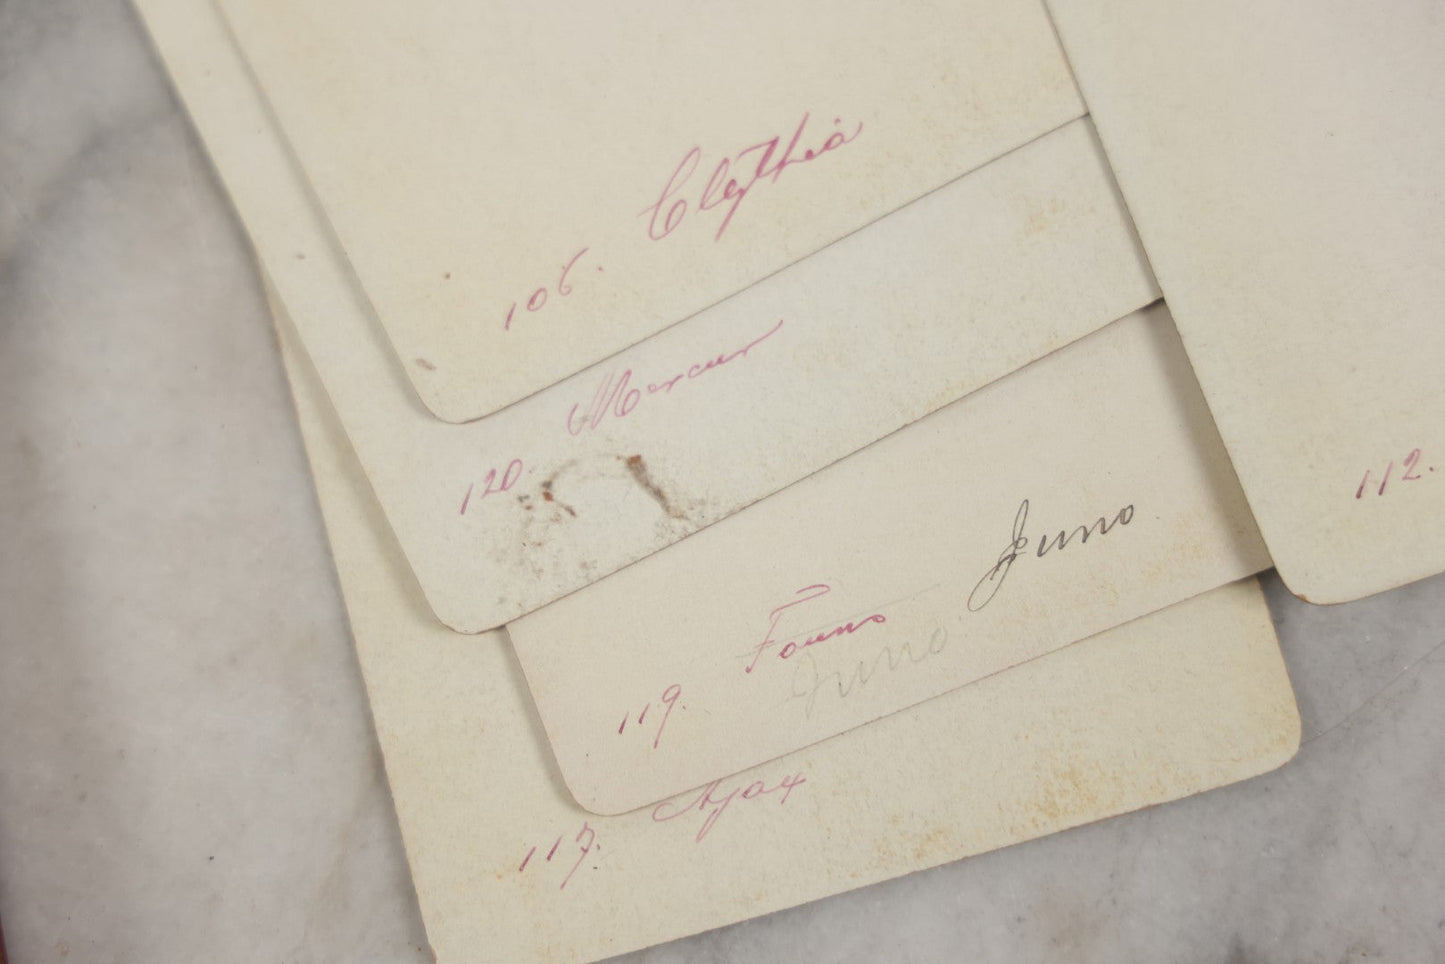 106. Clythia
120. Mercur
119. Fauno Juno
Juno
117. Ajax
112.